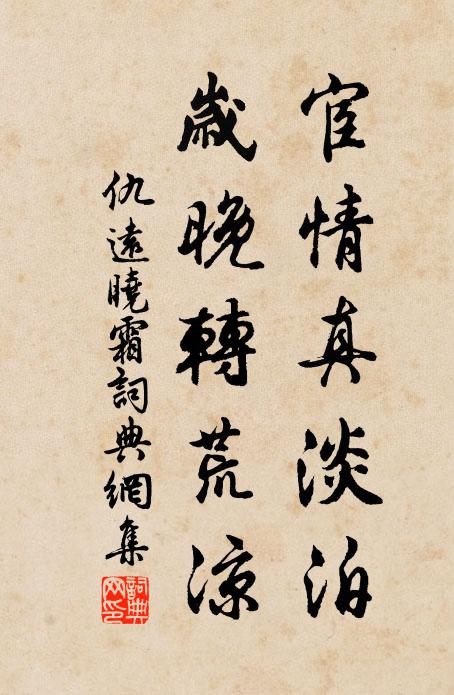 宦情真淡泊
歲晚轉荒涼
仇遠曉霜詞典網集
詞典
网印